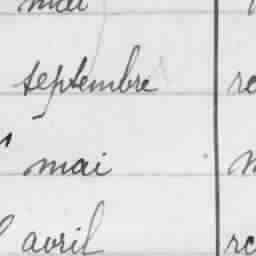 mai
septembre re
mai
avril rc